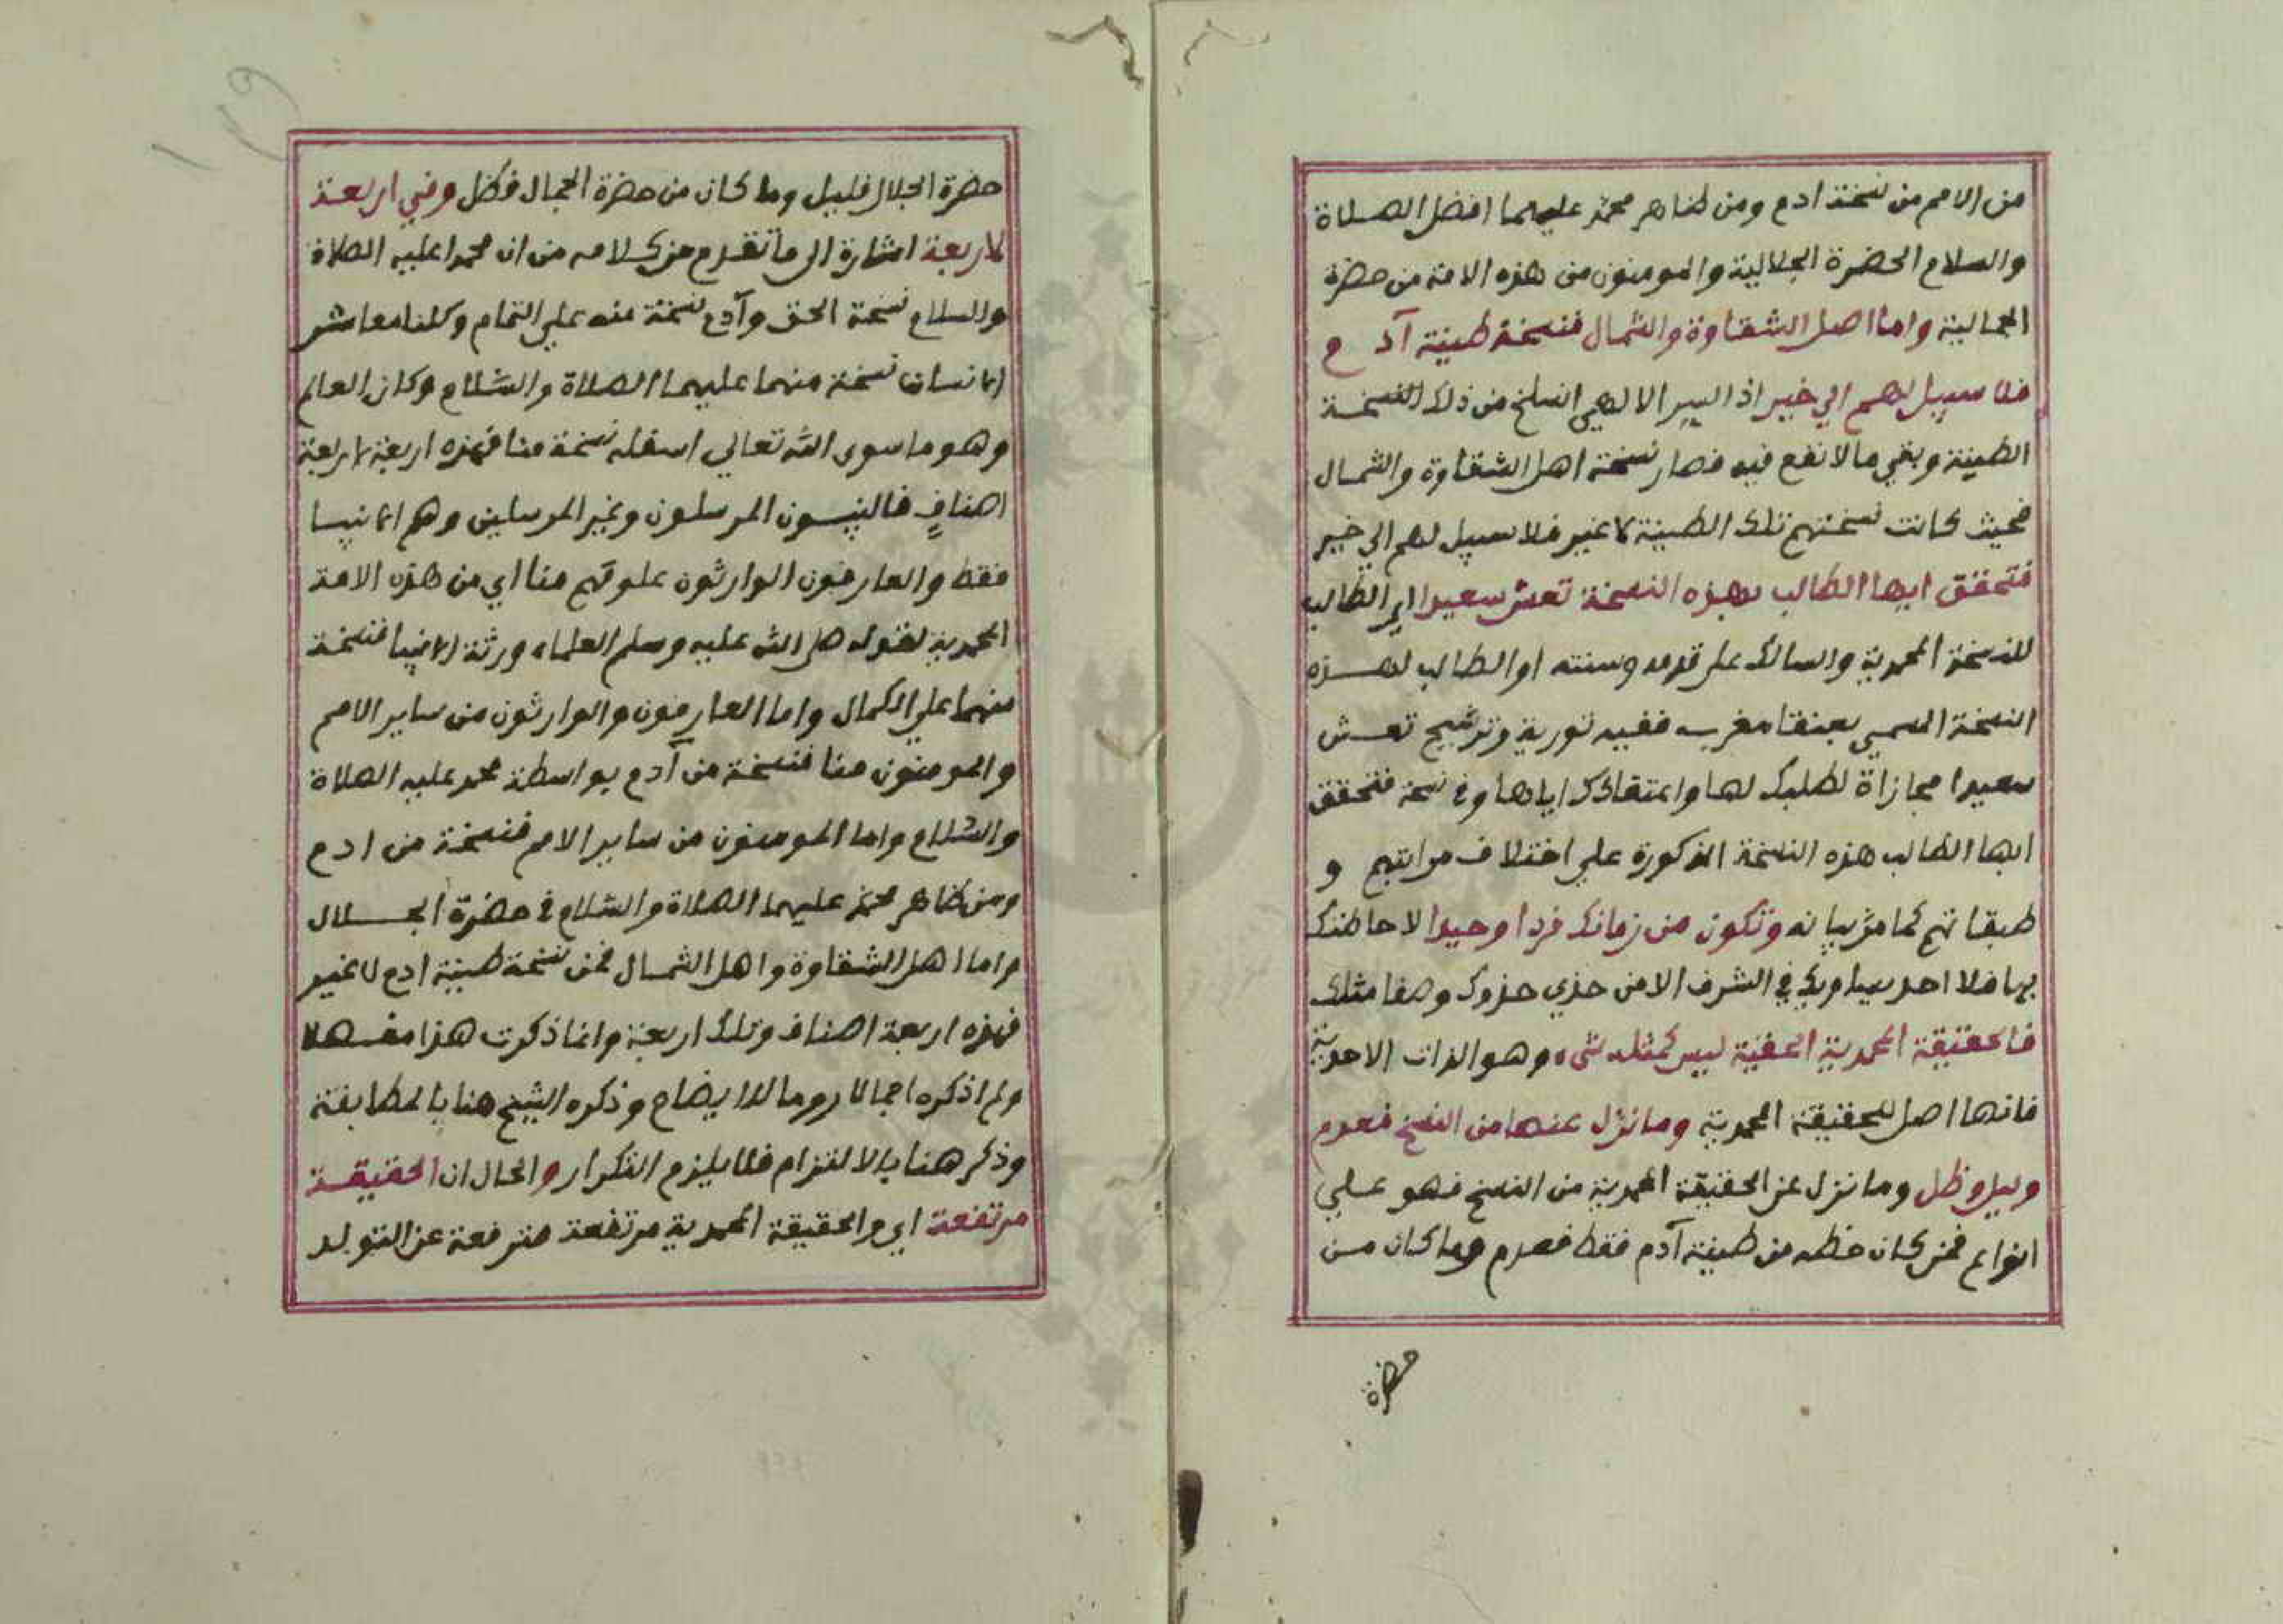 من الامم من نسخة ادم ومن ظاهر محمد عليهما افضل الصلاة
والسلام الحضرة الجلالية والمومنون من هذه الامة من حضرة
الجمالية واما اصل الشقاوة والشمال فنسخة طينة آدم
فلا سبيل لهم الي خير اذ السر الالهي انسلخ من ذلك النسخة
الطينة وبقي مالا نفع فيه فصار نسخة اهل الشقاوة والشمال
فحيث كانت نسختهم تلك الطينة لا غير فلا سبيل لهم الي خير
فتحقق ايها الطالب بهذه النسخة تعش سعيدا اي الطالب
للنسخة المحمدية والسالك على قدمه وسنته او الطالب لهذه
النسخة المسمي بعنقا مغرب ففيه تورية وترشيح تعش
سعيدا مجازاة لطلبك لها واعتقادك اياها وفي نسخة فتحقق
ايها الطالب هذه النسخة المذكورة علي اختلاف مراتبهم و
طبقاتهم كما مر بيانه وتكون من زمانك فردا وحيدا لاحاطتك
بها فلا احد يساويك في الشرف الا من حذي حذوك وصفا مثلك
فالحقيقة المحمدية الحقية ليس كمثله شيء وهو الذات الاحدية
فانها اصل للحقيقة المحمدية وما نزل عنها من النسخ فعدم
وليل وظل وما نزل عن الحقيقة المحمدية من النسخ فهو علي
انواع فمن كان حظه من طينة آدم فقط فعدم وما كان من
حضرة
حضرة الجلال فليل وما كان من حضرة الجمال فظل وفي اربعة
لاربعة اشارة الى ما تقدم من كلامه من ان محمدا عليه الصلاة
والسلام نسخة الحق وآدم نسخة منه علي التمام وكلنا معاشر
الانسان نسخة منهما عليهما الصلاة والسلام وكان العالم
وهو ما سوى الله تعالي اسفله نسخة منا فهذه اربعة لاربعة
اصنافٍ فالنبيون المرسلون وغير المرسلين وهم الانبيا
فقط والعارفون الوارثون علومهم منا اي من هذه الامة
المحمدية لقوله صلى الله عليه وسلم العلماء ورثة الانبيا فنسخة
منهما علي الكمال واما العارفون والوارثون من ساير الامم
والمومنون منا فنسخة من آدم بواسطة محمد عليه الصلاة
والسلام واما المومنون من ساير الامم فنسخة من ادم
ومن ظاهر محمد عليهما الصلاة والسلام في حضرة الجلال
واما اهل الشقاوة واهل الشمال فمن نسخة طينة ادم لا غير
فهذه اربعة اصناف وتلك اربعة وانما ذكرت هذا مفصلا
ولم اذكره اجمالا روما للايضاح وذكره الشيخ هنا بالمطابقة
وذكر هنا بالالتزام فلا يلزم التكرار والحال ان الحقيقة
مرتفعة اي والحقيقة المحمدية مرتفعة مترفعة عن التولد